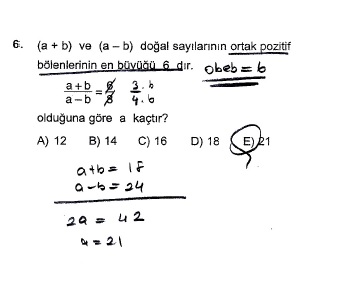 6. (a + b) ve (a – b) doğal sayılarının ortak pozitif
bölenlerinin en büyüğü 6 dır. obeb = 6
a+b / a–b = 6/8 3.6 / 4.6
olduğuna göre a kaçtır?
A) 12 B) 14 C) 16 D) 18 E) 21
a+b = 18
a-b = 24
2a = 42
a = 21